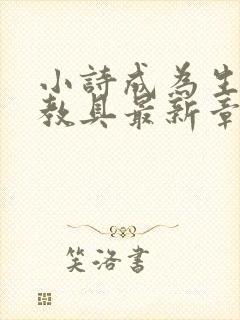 小詩成為生
教具最新章
笑洛書